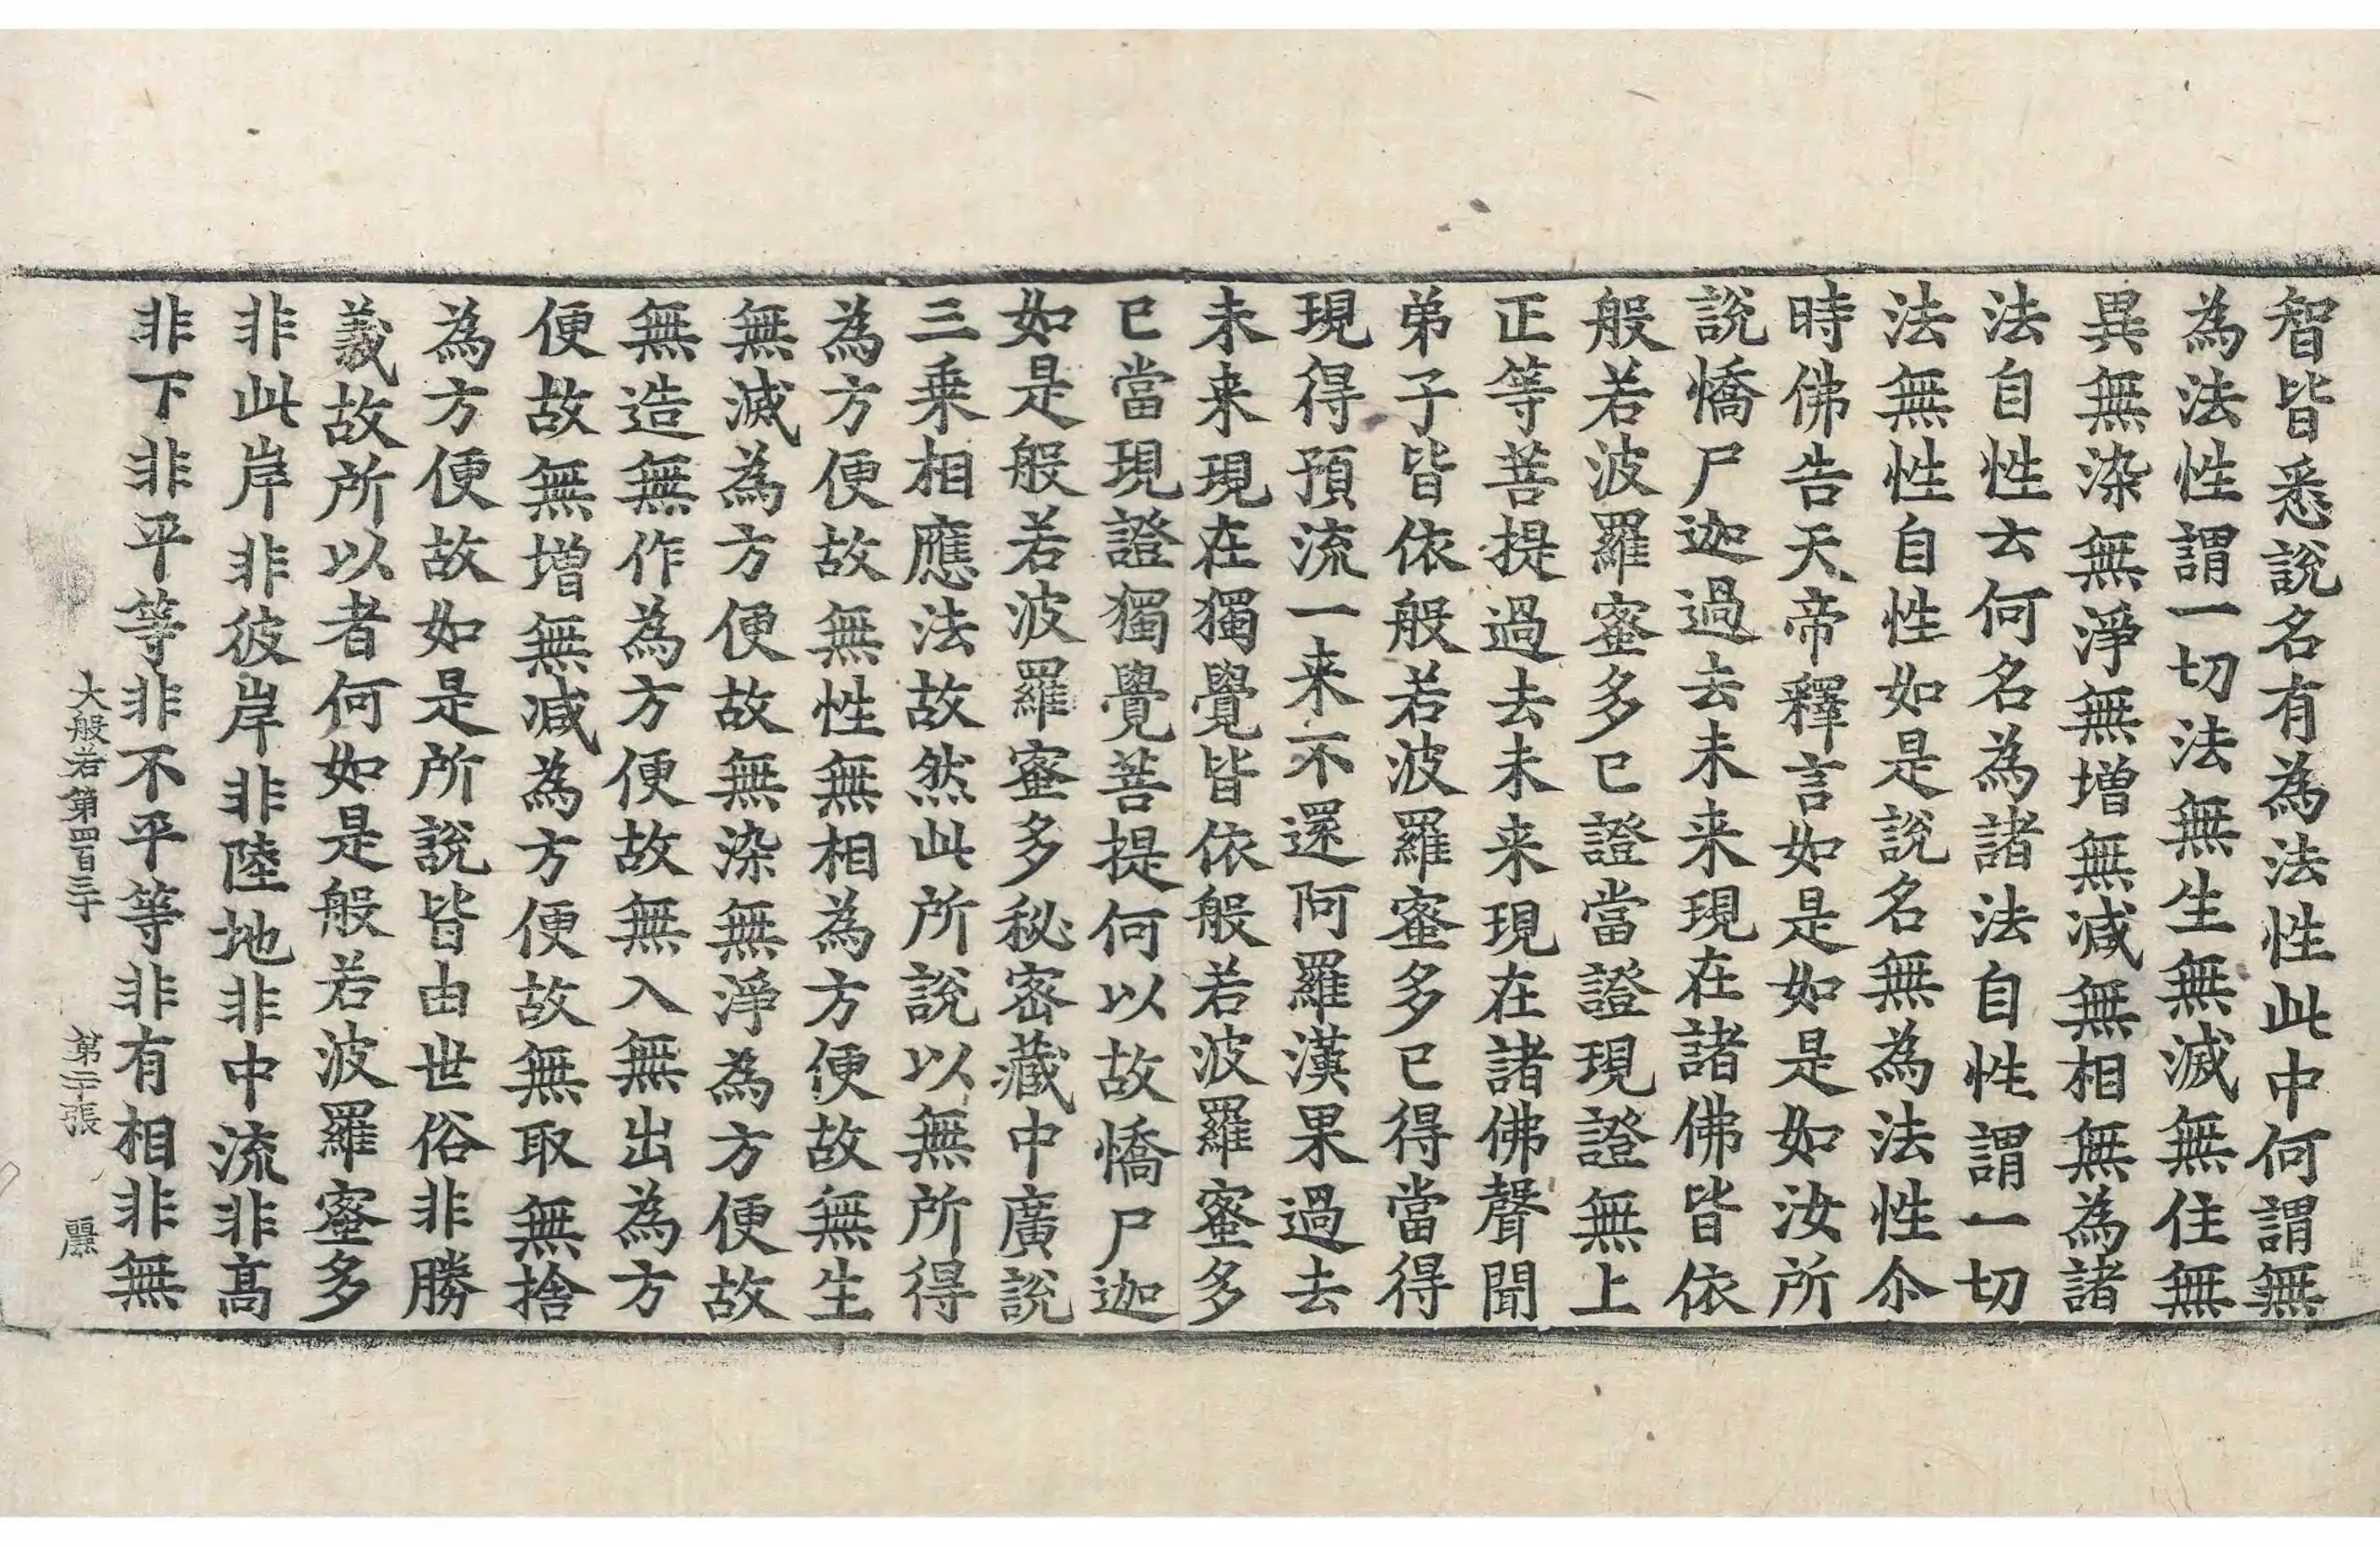 智皆悉說名有為法性此中何謂無
為法性謂一切法無生無滅無住無
異無染無淨無增無減無相無為諸
法自性云何名為諸法自性謂一切
法無性自性如是說名無為法性尒
時佛告天帝釋言如是如是如汝所
說憍尸迦過去未来現在諸佛皆依
般若波羅蜜多已證當證現證無上
正等菩提過去未来現在諸佛聲聞
弟子皆依般若波羅蜜多已得當得
現得預流一来不還阿羅漢果過去
未来現在獨覺皆依般若波羅蜜多
已當現證獨覺菩提何以故憍尸迦
如是般若波羅蜜多秘密藏中廣說
三乗相應法故然此所說以無所得
為方便故無性無相為方便故無生
無滅為方便故無染無淨為方便故
無造無作為方便故無入無出為方
便故無增無減為方便故無取無捨
為方便故如是所說皆由世俗非勝
義故所以者何如是般若波羅蜜多
非此岸非彼岸非陸地非中流非髙
非下非平等非不平等非有相非無
大般若第四百三十 第二十張 麗